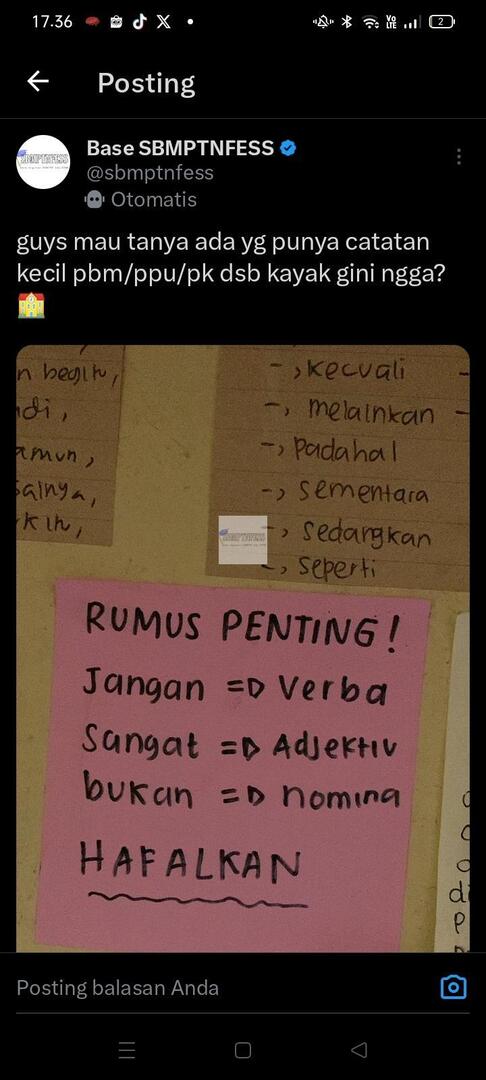 17.36
VO LTE
2
Posting
Base SBMPTNFESS
@sbmptnfess
Otomatis
guys mau tanya ada yg punya catatan
kecil pbm/ppu/pk dsb kayak gini ngga?
n begitu,
di,
amun,
kin,
-, kecuali
-, melainkan
-, Padahal
-, sementara
-, sedangkan
-, seperti
SBMPTNFESS
RUMUS PENTING!
Jangan => Verba
Sangat => Adjektiv
bukan => nomina
HAFALKAN
di
P
Posting balasan Anda